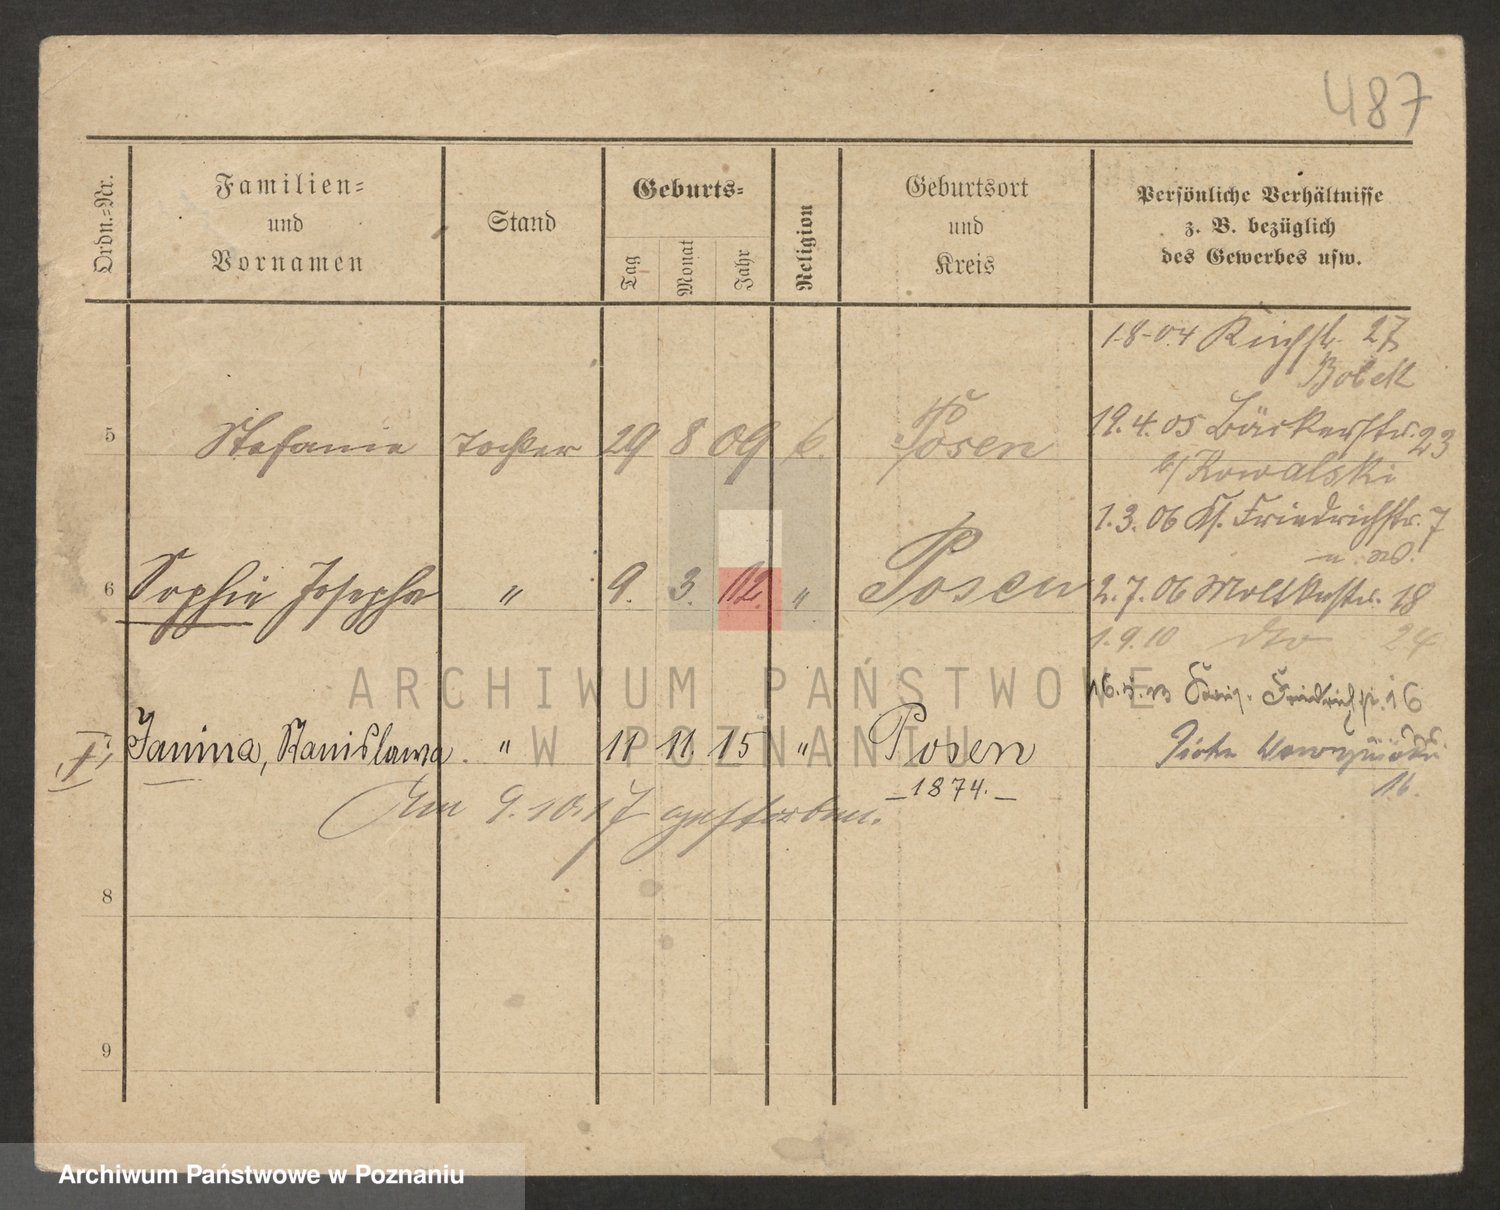 487
Ordn.-Nr.
Familien-
und
Vornamen
Stand
Geburts-
Tag
Monat
Jahr
Religion
Geburtsort
und
Kreis
Persönliche Verhältnisse
z. B. bezüglich
des Gewerbes usw.
1.8.04 Kirchstr. 27
Bobek
5 Stefanie Tochter 29 8 09 k. Posen
19.4.05 Bäckerstr. 23
b/ Kowalski
1.3.06 Kl. Friedrichstr. 7
6 Sophie Josepha " 9. 3. 02 " Posen
2.7.06 Moltkestr. 18
1.9.10 dto 24
Janina, Stanislawa. " 11 11. 15 " Posen
1874.
16
16.
Am 9.10.17 gestorben.
8
9
ARCHIWUM PAŃSTWOWE
W POZNANIU
Archiwum Państwowe w Poznaniu